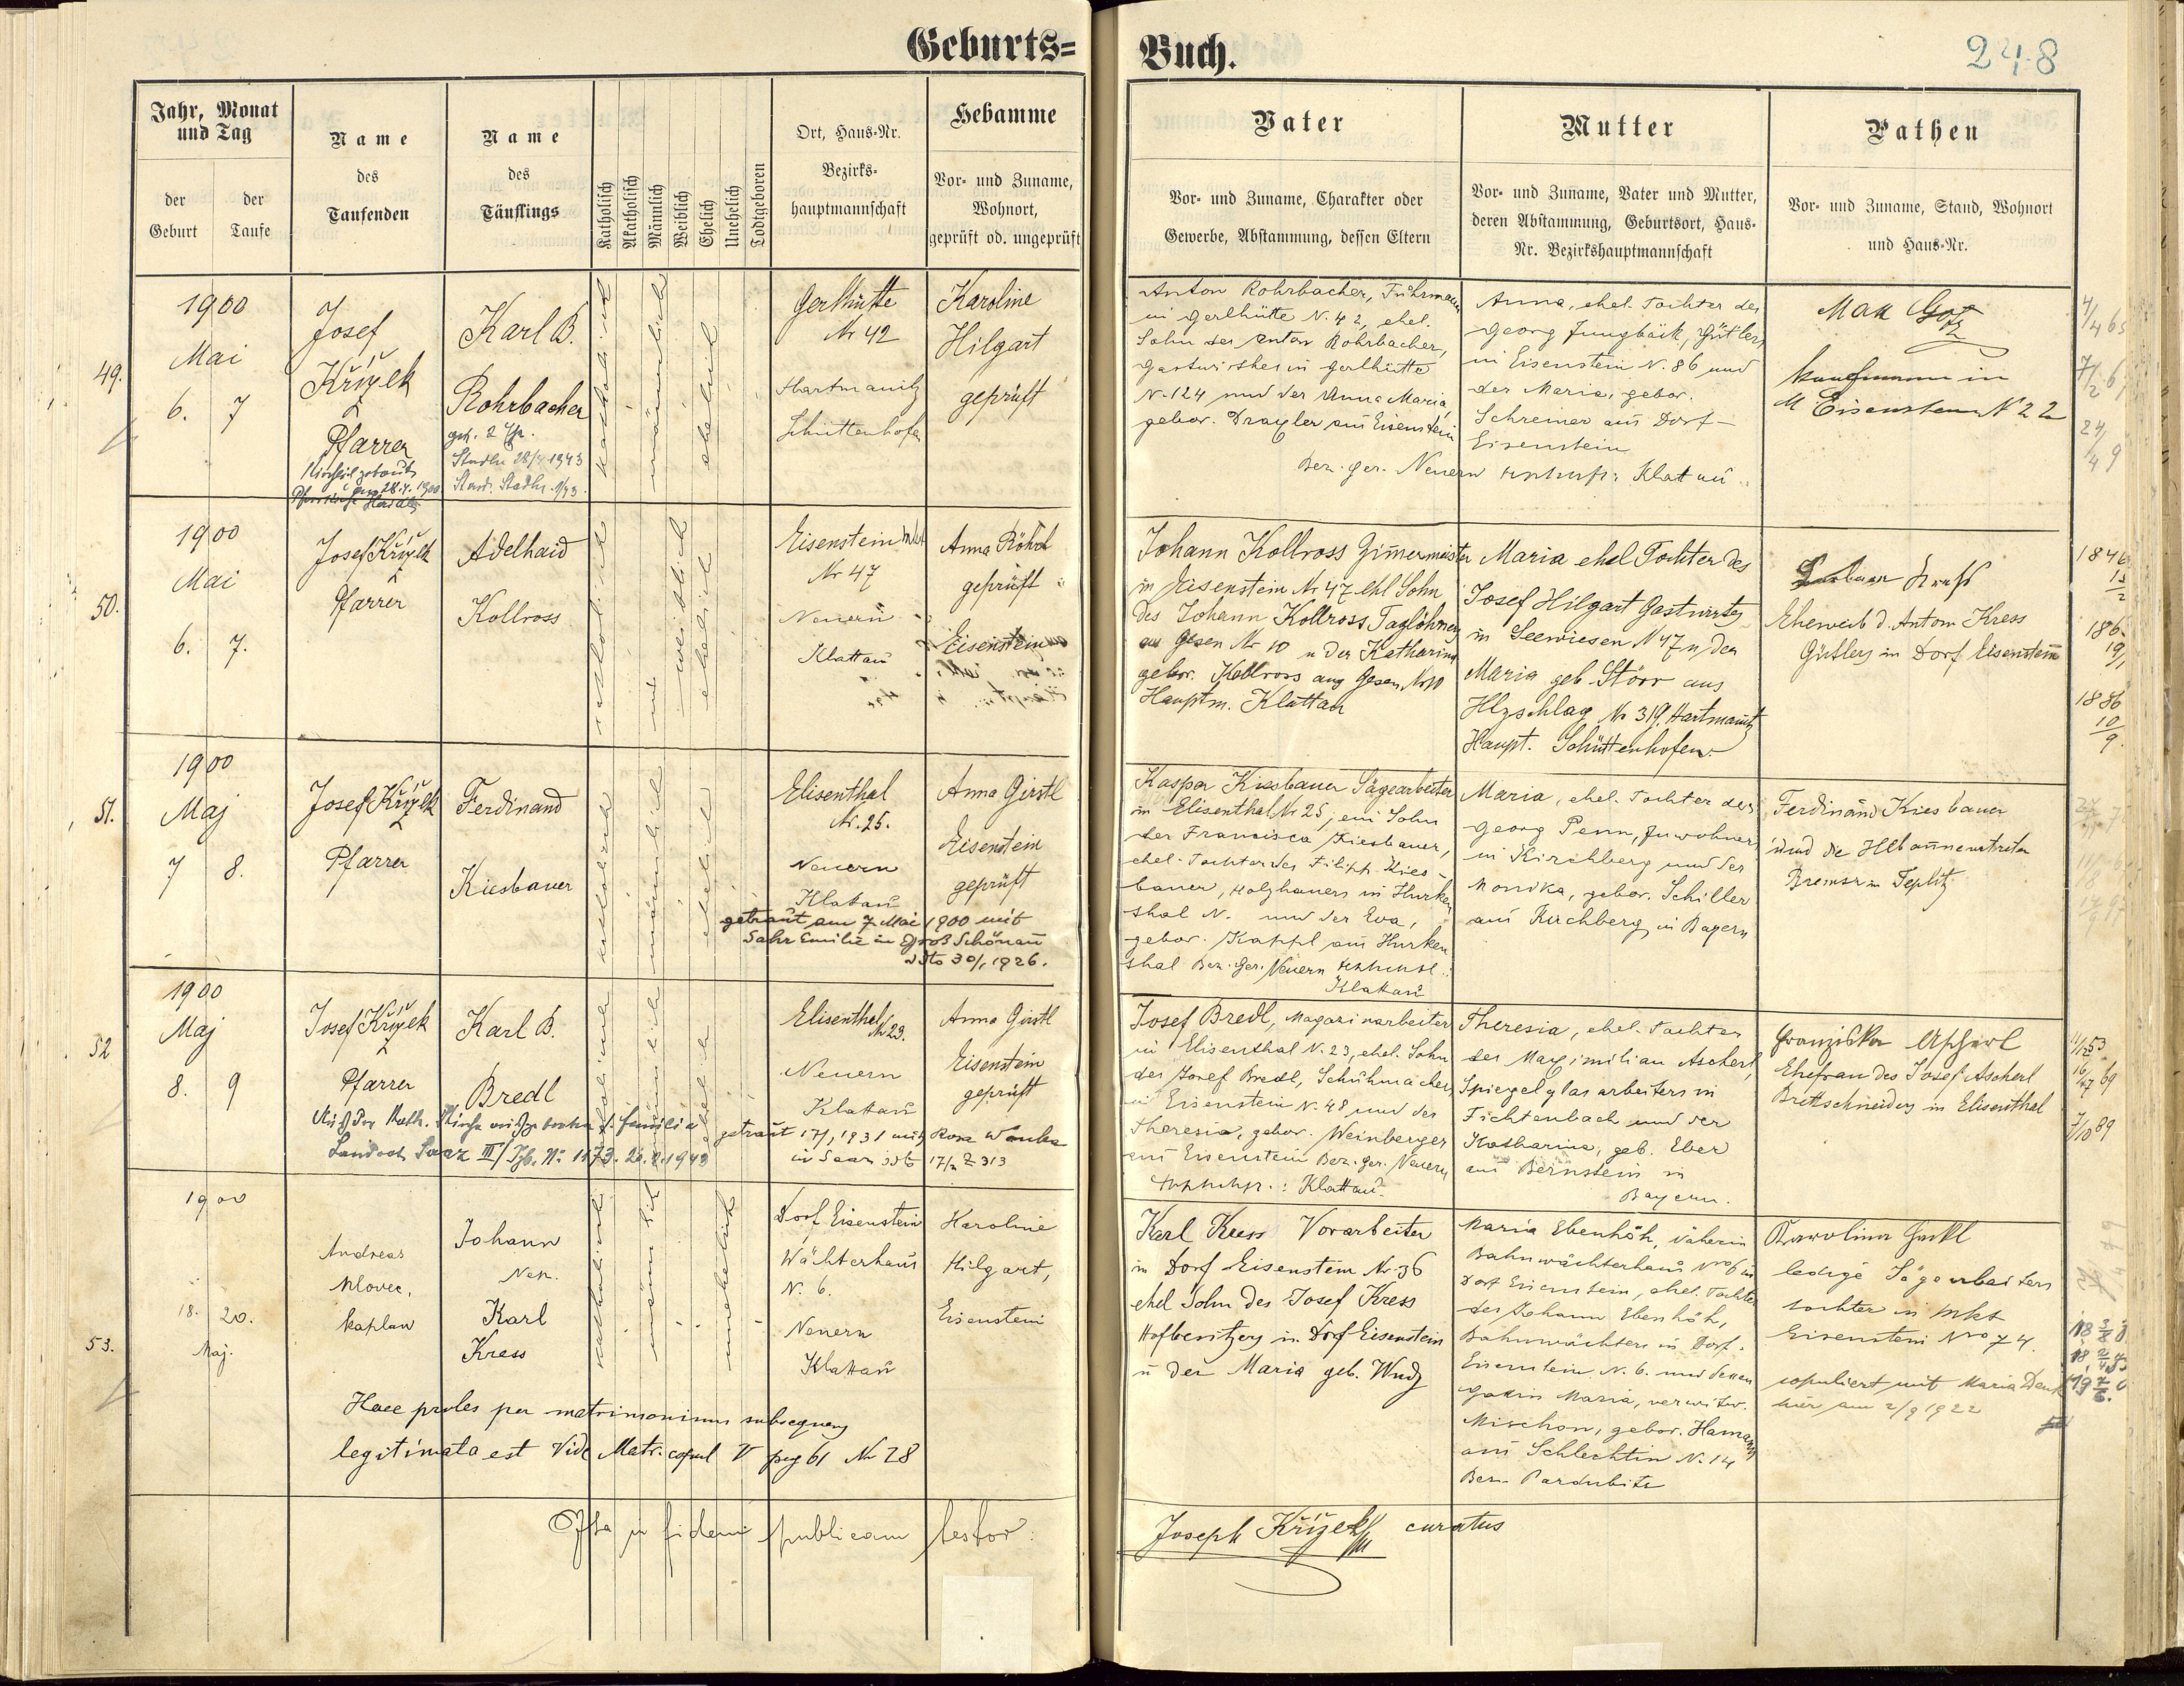 Geburts=
Buch.
248
Jahr, Monat
und Tag
der
Geburt
der
Taufe
Name
des
Taufenden
Name
des
Täuflings
Katholisch
Akatholisch
Männlich
Weiblich
Ehelich
Unehelich
Todtgeboren
Ort, Haus-Nr.
Bezirks-
hauptmannschaft
Hebamme
Vor- und Zuname,
Wohnort,
geprüft od. ungeprüft
Vater
Vor- und Zuname, Charakter oder
Gewerbe, Abstammung, dessen Eltern
Mutter
Vor- und Zuname, Vater und Mutter,
deren Abstammung, Geburtsort, Haus-
Nr. Bezirkshauptmannschaft
Pathen
Vor- und Zuname, Stand, Wohnort
und Haus-Nr.
49.
1900
Mai
6. 7
Josef
Křížek
Pfarrer
Karl B.
Rohrbacher
katholisch
männlich
ehelich
Gerlhütte
Nr 42
Hartmanitz
Schüttenhofen
Karoline
Hilgart
geprüft
Anton Rohrbacher, Fuhrmann
in Gerlhütte N. 42, ehel.
Sohn des Anton Rohrbacher,
Gastwirthes in Gerlhütte
N. 124 und der Anna Maria,
gebor. Draxler aus Eisenstein
Bez. Ger. Neuern Klattau
Anna, ehel. Tochter des
Georg Jungbäck, Gütlers
in Eisenstein N. 86 und
der Maria, gebor.
Schreiner aus Dorf-
Eisenstein
Max Götz
Kaufmann in
M. Eisenstein N 22
50.
1900
Mai
6. 7.
Josef Křížek
Pfarrer
Adelhaid
Kollross
katholisch
weiblich
ehelich
Eisenstein Markt
Nr 47
Neuern
Klattau
Anna Röhrl
geprüft
Eisenstein
Johann Kollross Zimmermeister
in Eisenstein Nr 47 ehl Sohn
des Johann Kollross Taglöhners
aus Gesen Nr 10 u der Katharina
gebor. Kollross aus Gesen Nr 10
Hauptm. Klattau
Maria ehel Tochter des
Josef Hilgart Gastwirtes
in Seewiesen N 47 u der
Maria geb Störr aus
Hlzschlag Nr 319. Hartmanitz
Haupt. Schüttenhofen
Eheweib d. Anton Kress
Gütlers in Dorf Eisenstein
51.
1900
Maj
7 8.
Josef Křížek
Pfarrer
Ferdinand
Kiesbauer
katholisch
männlich
ehelich
Elisenthal
Nr. 25.
Neuern
Klattau
Anna Girstl
Eisenstein
geprüft
getraut am 7. Mai 1900 mit
Sahr Emilie in Groß Schönau
dto 30/1 1926.
Kaspar Kiesbauer Sägearbeiter
in Elisenthal Nr 25, ein Sohn
der Francisca Kiesbauer,
ehel. Tochter des Filipp Kies-
bauer, Holzhauers in Hurken-
thal N. und der Eva,
gebor. Kappl aus Hurken
thal Bez. Ger. Neuern
Klattau
Maria, ehel. Tochter des
Georg Penn, Inwohner
in Kirchberg und der
Monika, gebor. Schiller
aus Kirchberg in Bayern
Ferdinand Kiesbauer
Bremser in Teplitz
52
1900
Maj
8. 9
Josef Křížek
Pfarrer
Karl B.
Bredl
katholisch
männlich
ehelich
Elisenthal
Nr 23.
Neuern
Klattau
Anna Girstl
Eisenstein
geprüft
Landrat Saaz III/ Tgb. Nr. 1173. 26.2.1943
getraut 17/1 1931 mit Rosa Wanka
in Saaz dto 17/2 Z 313
Josef Bredl, Magazinarbeiter
in Elisenthal N. 23, ehel. Sohn
des Josef Bredl, Schuhmachers
in Eisenstein N. 48 und der
Theresia, gebor. Weinberger
aus Eisenstein Bez. Ger. Neuern
Klattau
Theresia, ehel. Tochter
des Maximilian Ascherl,
Spiegelglasarbeiters in
Fichtenbach und der
Katharina, geb. Eber
aus Bernstein in
Bayern.
Franziska Ascherl
Ehefrau des Josef Ascherl
Brettschneiders in Elisenthal
53.
1900
18. 20.
Maj.
Andreas
Klovec,
Kaplan
Johann
Nep.
Karl
Kress
katholisch
männlich
unehelich
Dorf Eisenstein
Wächterhaus
N. 6.
Neuern
Klattau
Karoline
Hilgart,
Eisenstein
Haec proles per matrimonium subsequens
legitimata est Vide Matr. copul V pag 61 Nr 28
Karl Kress Vorarbeiter
in Dorf Eisenstein Nr. 36
ehel Sohn des Josef Kress
Hofbesitzers in Dorf Eisenstein
u der Maria geb. Wudz
Maria Ebenhöh, Näherin
Bahnwächterhaus Nro 6 in
Dorf Eisenstein, ehel. Tochter
des Johann Ebenhöh,
Bahnwächters in Dorf-
Eisenstein N. 6. und dessen
Gattin Maria, verwitw.
Mischon, gebor. Hamann
aus Schlechtin N. 14
Bez. Pardubitz
Karolina Jackl
ledige Sägearbeiters
tochter in Mkt
Eisenstein Nro 74.
copuliert mit Maria Denk
hier am 2/9 1922
Ita in fidem publicam testor:
Joseph Křížek curatus